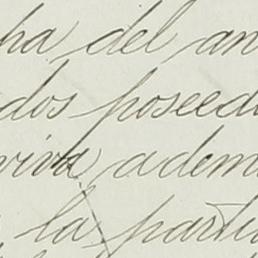 ha del an
dos poseed
viva adem
la parti